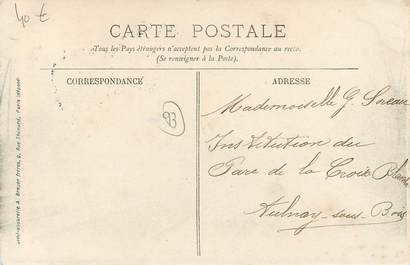 40 €
CARTE POSTALE
Tous les Pays étrangers n'acceptent pas la Correspondance au recto.
(Se renseigner à la Poste).
CORRESPONDANCE
ADRESSE
93
Mademoiselle G.
Institution du
Parc de la Croix
Aulnay-sous-Bois